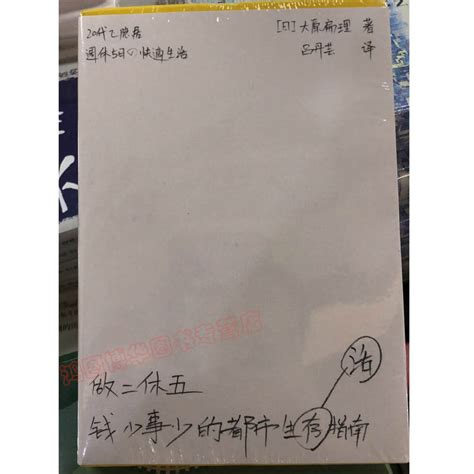 20代で隠居
週休5日の快適生活
[日]大原扁理 著
吕丹芸 译
做二休五
活
钱少事少的都市生存指南
鸿图博华图书专营店